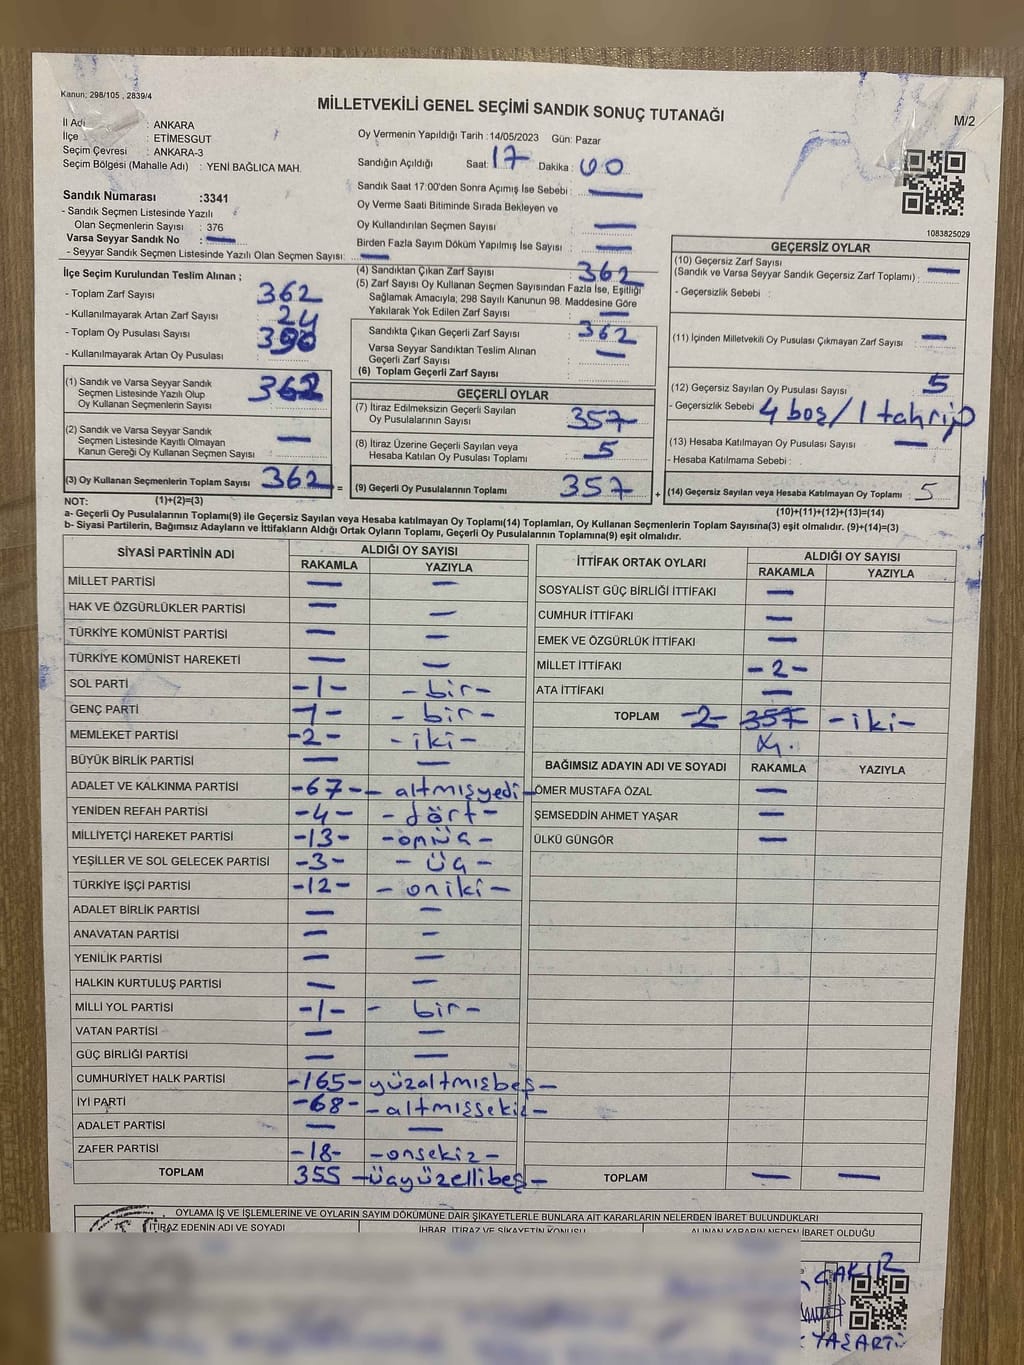 Kanun; 298/105 , 2839/4
MİLLETVEKİLİ GENEL SEÇİMİ SANDIK SONUÇ TUTANAĞI
M/2
İl Adı : ANKARA
İlçe : ETİMESGUT
Seçim Çevresi : ANKARA-3
Seçim Bölgesi (Mahalle Adı) : YENİ BAĞLICA MAH.
Oy Vermenin Yapıldığı Tarih : 14/05/2023 Gün: Pazar
Sandığın Açıldığı Saat: 17 Dakika : 00
Sandık Saat 17:00'den Sonra Açımış İse Sebebi : —
Oy Verme Saati Bitiminde Sırada Bekleyen ve
Oy Kullandırılan Seçmen Sayısı —
Birden Fazla Sayım Döküm Yapılmış İse Sayısı : —
1083825029
Sandık Numarası :3341
- Sandık Seçmen Listesinde Yazılı
Olan Seçmenlerin Sayısı : 376
Varsa Seyyar Sandık No : —
- Seyyar Sandık Seçmen Listesinde Yazılı Olan Seçmen Sayısı: —
İlçe Seçim Kurulundan Teslim Alınan ;
- Toplam Zarf Sayısı 362
- Kullanılmayarak Artan Zarf Sayısı : 24
- Toplam Oy Pusulası Sayısı :
- Kullanılmayarak Artan Oy Pusulası :
(1) Sandık ve Varsa Seyyar Sandık
Seçmen Listesinde Yazılı Olup
Oy Kullanan Seçmenlerin Sayısı 362
(2) Sandık ve Varsa Seyyar Sandık
Seçmen Listesinde Kayıtlı Olmayan
Kanun Gereği Oy Kullanan Seçmen Sayısı —
(3) Oy Kullanan Seçmenlerin Toplam Sayısı 362 =
(4) Sandıktan Çıkan Zarf Sayısı : 362
(5) Zarf Sayısı Oy Kullanan Seçmen Sayısından Fazla İse, Eşitliği
Sağlamak Amacıyla; 298 Sayılı Kanunun 98. Maddesine Göre
Yakılarak Yok Edilen Zarf Sayısı : —
Sandıkta Çıkan Geçerli Zarf Sayısı : 362
Varsa Seyyar Sandıktan Teslim Alınan
Geçerli Zarf Sayısı : —
(6) Toplam Geçerli Zarf Sayısı
GEÇERLİ OYLAR
(7) İtiraz Edilmeksizin Geçerli Sayılan
Oy Pusulalarının Sayısı : 357
(8) İtiraz Üzerine Geçerli Sayılan veya
Hesaba Katılan Oy Pusulası Toplamı : 5
(9) Geçerli Oy Pusulalarının Toplamı 357 +
GEÇERSİZ OYLAR
(10) Geçersiz Zarf Sayısı
(Sandık ve Varsa Seyyar Sandık Geçersiz Zarf Toplamı) : —
- Geçersizlik Sebebi :
(11) İçinden Milletvekili Oy Pusulası Çıkmayan Zarf Sayısı : —
(12) Geçersiz Sayılan Oy Pusulası Sayısı : 5
- Geçersizlik Sebebi 4 boş/1 tahrip
(13) Hesaba Katılmayan Oy Pusulası Sayısı : —
- Hesaba Katılmama Sebebi :
(14) Geçersiz Sayılan veya Hesaba Katılmayan Oy Toplamı : 5
NOT: (1)+(2)=(3)
(10)+(11)+(12)+(13)=(14)
a- Geçerli Oy Pusulalarının Toplamı(9) ile Geçersiz Sayılan veya Hesaba katılmayan Oy Toplamı(14) Toplamları, Oy Kullanan Seçmenlerin Toplam Sayısına(3) eşit olmalıdır. (9)+(14)=(3)
b- Siyasi Partilerin, Bağımsız Adayların ve İttifakların Aldığı Ortak Oyların Toplamı, Geçerli Oy Pusulalarının Toplamına(9) eşit olmalıdır.
SİYASİ PARTİNİN ADI ALDIĞI OY SAYISI
RAKAMLA YAZIYLA
MİLLET PARTİSİ — —
HAK VE ÖZGÜRLÜKLER PARTİSİ — —
TÜRKİYE KOMÜNİST PARTİSİ — —
TÜRKİYE KOMÜNİST HAREKETİ — —
SOL PARTİ -1- -bir-
GENÇ PARTİ -1- -bir-
MEMLEKET PARTİSİ -2- -iki-
BÜYÜK BİRLİK PARTİSİ — —
ADALET VE KALKINMA PARTİSİ -67- -altmışyedi-
YENİDEN REFAH PARTİSİ -4- -dört-
MİLLİYETÇİ HAREKET PARTİSİ -13- -onüç-
YEŞİLLER VE SOL GELECEK PARTİSİ -3- -üç-
TÜRKİYE İŞÇİ PARTİSİ -12- -oniki-
ADALET BİRLİK PARTİSİ — —
ANAVATAN PARTİSİ — —
YENİLİK PARTİSİ — —
HALKIN KURTULUŞ PARTİSİ — —
MİLLİ YOL PARTİSİ -1- -bir-
VATAN PARTİSİ — —
GÜÇ BİRLİĞİ PARTİSİ — —
CUMHURİYET HALK PARTİSİ -165- yüzaltmışbeş-
İYİ PARTİ -68- -altmışsekiz-
ADALET PARTİSİ — —
ZAFER PARTİSİ -18- -onsekiz-
TOPLAM 355 -üçyüzellibeş-
İTTİFAK ORTAK OYLARI ALDIĞI OY SAYISI
RAKAMLA YAZIYLA
SOSYALİST GÜÇ BİRLİĞİ İTTİFAKI —
CUMHUR İTTİFAKI —
EMEK VE ÖZGÜRLÜK İTTİFAKI —
MİLLET İTTİFAKI -2-
ATA İTTİFAKI —
TOPLAM -2- 357 -iki-
BAĞIMSIZ ADAYIN ADI VE SOYADI RAKAMLA YAZIYLA
ÖMER MUSTAFA ÖZAL —
ŞEMSEDDİN AHMET YAŞAR —
ÜLKÜ GÜNGÖR —
TOPLAM — —
OYLAMA İŞ VE İŞLEMLERİNE VE OYLARIN SAYIM DÖKÜMÜNE DAİR ŞİKAYETLERLE BUNLARA AİT KARARLARIN NELERDEN İBARET BULUNDUKLARI
İTİRAZ EDENİN ADI VE SOYADI İHBAR, İTİRAZ VE ŞİKAYETİN KONUSU ALINAN KARARIN NEDEN İBARET OLDUĞU
ÇAKIR